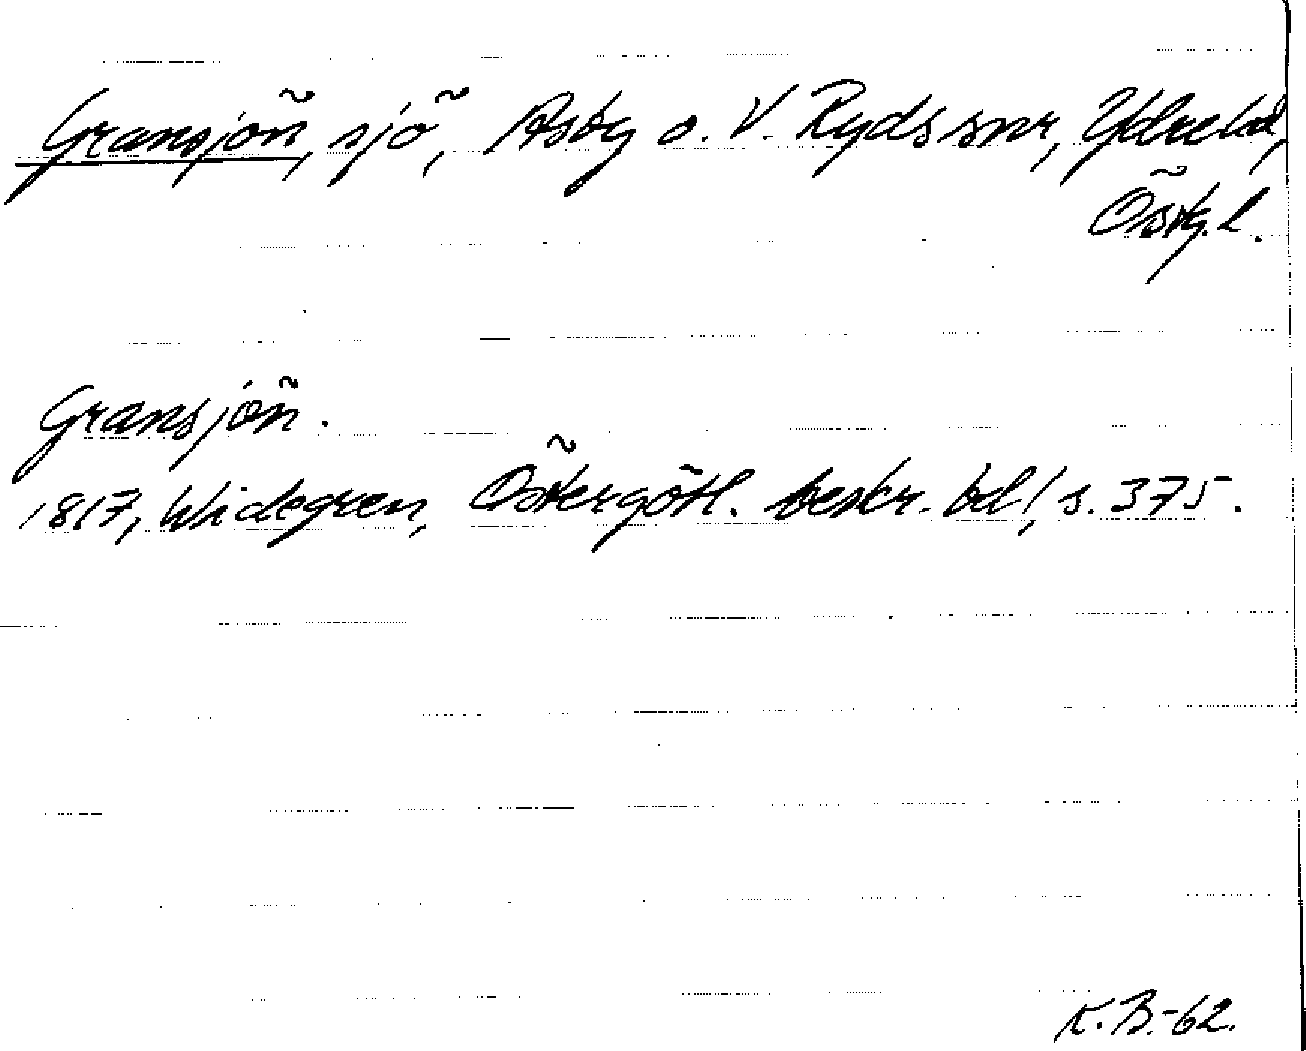 Gransjön, sjö, Asby o. V. Ryds snr, Ydre hd,
Östg. l.
Gransjön.
1817, Widegren, Östergötl. beskr. bd 1, s. 375.
K.B.-62.